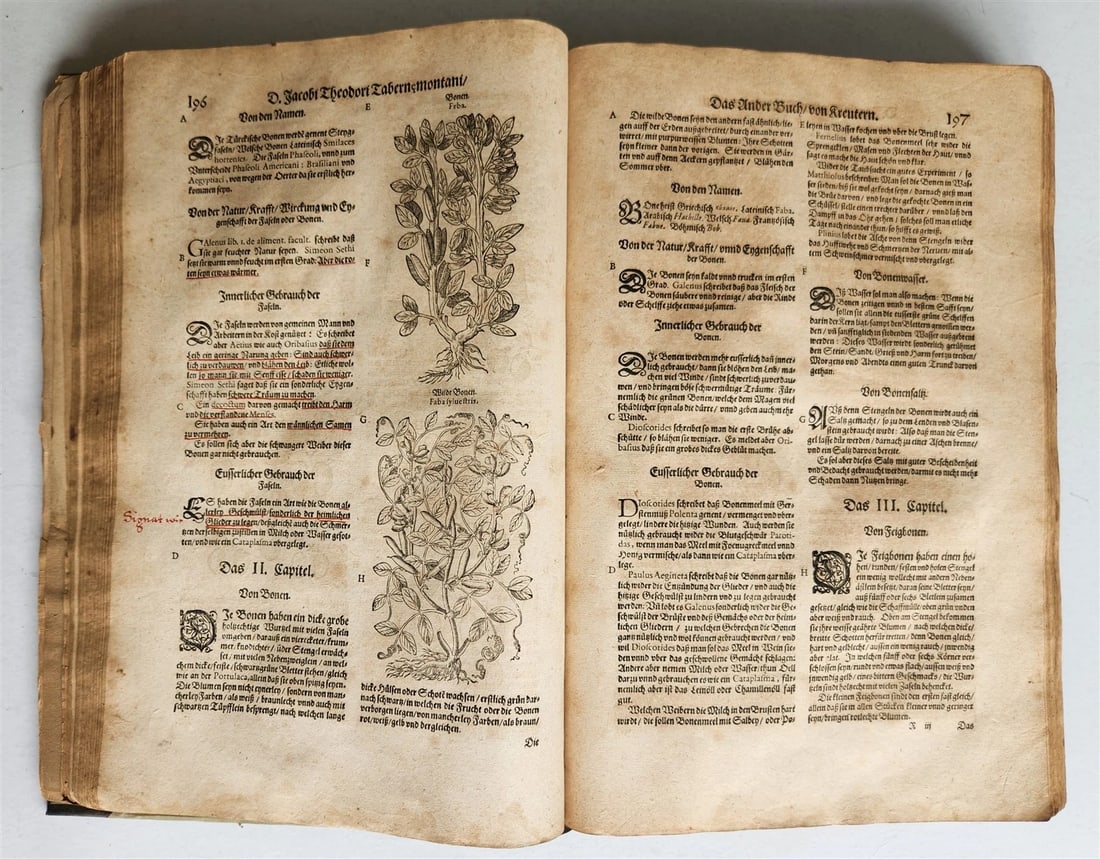 196
D. Jacobi Theodori Tabernæmontani/
Von den Namen.
A
DIe Türckische Bonen werdē genent Steyg-
faseln/ Welsche Bonen Lateinisch Smilaces
hortenses. Die Faseln Phaseoli, vnnd zum
Vnterscheidt Phaseoli Americani: Brasiliani vnd
Aegyptiaci, von wegen der Oerter da sie erstlich her-
kommen seyn.
Von der Natur/ Krafft/ Wirckung vnd Ey-
genschafft der Faseln oder Bonen.
GAlenus lib. 1. de aliment. facult. schreibt daß
sie gar feuchter Natur seyen. Simeon Sethi
B
setzt sie warm vnnd feucht im ersten Grad: Aber die ro-
ten seyn etwas wärmer.
Innerlicher Gebrauch der
Faseln.
DIe Faseln werden von gemeinen Mann vnd
Arbeitern in der Kost genützet: Es schreibet
aber Aetius wie auch Oribasius daß sie dem
Leib ein geringe Narung geben: Sind auch schwer-
lich zu verdauwen/ vnd blähen den Leib: Etliche wol-
len so mann sie mit Senff isse/ schaden sie weniger.
Simeon Sethi saget daß sie ein sonderliche Eygen-
schafft haben schwere Träum zu machen.
C
Ein decoctum darvon gemacht treibt den Harn
vnd die verstandene Menses.
Sie haben auch ein Art den männlichen Samen
zu vermehren.
Es sollen sich aber die schwangere Weiber dieser
Bonen gar nicht gebrauchen.
Eusserlicher Gebrauch der
Faseln.
ES haben die Faseln ein Art wie die Bonen al-
lerley Geschwulst/ sonderlich der heimlichen
Glieder zu legen/ deßgleichē auch die Schmer-
tzen derselbigen zustillen in Milch oder Wasser gesot-
ten/ vnd wie ein Cataplasma vbergelegt.
D
Das II. Capitel.
Von Bonen.
DIe Bonen haben ein dicke grobe
holtzechtige Wurtzel mit vielen Faseln
vmgeben/ darauß ein viereckter/ krum-
mer/ knodichter/ Stengel erwäch-
set/ mit vielen Nebenzweiglein/ an wel-
chem dicke/ feiste/ schwartzgrüne Bletter stehen/ gleich
wie an der Portulaca, allein daß sie oben spitzig seyn.
Die Blumen seyn nicht eynerley/ sondern von man-
cherley Farben/ als weiß/ braunlecht vnnd auch mit
schwartzen Tüpfflein besprengt/ nach welchen lange
E
Bonen.
Faba.
F
Wilde Bonen.
Faba sylvestris.
G
H
dicke Hülsen oder Schotē wachsen/ erstlich grün dar-
nach schwartz/ in welchen die Frucht oder die Bonen
verborgen liegen/ von mancherley Farben/ als braun/
rot/ weiß/ gelb vnd dergleichen.
Die
Das Ander Buch/ von Kreutern.
197
A
Die wilde Bonen seyn den andern fast ähnlich/ lie-
gen auff der Erden außgebreitet/ durch einander ver-
wirret/ mit purpurweissen Blumen: Ihre Schotten
seyn kleiner dann der vorigen. Sie werden in Gär-
ten vnd auff den Aeckern gepflantzet/ Blühen den
Sommer vber.
Von den Namen.
BOne heißt Griechisch κύαμος. Lateinisch Faba.
Arabisch Welsch Fava. Frantzösisch
Febue. Böhmisch Bob.
Von der Natur/ Krafft/ vnnd Eygenschafft
der Bonen.
B
DIe Bonen seyn kaldt vnnd trucken im ersten
Grad. Galenus schreibet daß das Fleisch der
Bonen säubere vnnd reinige/ aber die Rinde
oder Schelffe ziehe etwas zusamen.
Innerlicher Gebrauch der
Bonen.
DIe Bonen werden mehr eusserlich daß inner-
lich gebraucht/ dann sie blöhen den Leib/ ma-
chen viel Winde/ sindt schwerlich zu verdau-
wen/ vnd bringen böse schwermütige Träume: Für-
nemlich die grünen Bonen/ welche dem Magen viel
schädlicher seyn als die dürre/ vnnd geben auch mehr
C
Winde.
Dioscorides schreibet so man die erste Brühe ab-
schütte/ so blähen sie weniger. Es meldet aber Ori-
basius daß sie ein grobes dickes Geblüt machen.
Eusserlicher Gebrauch der
Bonen.
DIoscorides schreibet daß Bonenmeel mit Ger-
stenmuß Polenta genent/ vermengt vnd vber-
gelegt/ lindere die hitzige Wunden. Auch werden sie
nützlich gebraucht wider die Blutgeschwär Paroti-
das, wenn man das Meel mit Foenugreckmeel vnnd
Honig vermischet/ als dann wie ein Cataplasma vber-
legt.
D
Paulus Aegineta schreibet daß die Bonen gar nütz-
lich wider die Entzündung der Glieder/ vnd auch die
hitzige Geschwülst zu lindern vnd zu legen gebraucht
werden: Vñ lobt es Galenus sonderlich wider die Ge-
schwülst der Brüste vnd deß Gemächts oder der heim-
lichen Gliedern/ zu welchen Gebrechen die Bonen
gantz nützlich vnd wol können gebraucht werden/ vnd
wil Dioscorides daß man sol das Meel in Wein sie-
den vnnd vber das geschwollene Gemächt schlagen:
Andere aber nemen Milch oder Wasser/ thun Oell
darzu vnnd gebrauchen es wie ein Cataplasma, für-
nemlich aber ist das Leinöll oder Chamillenöll fast
gut.
Welchen Weibern die Milch in den Brüsten hart
wirdt/ die sollen Bonenmeel mit Salbey/ oder Po-
E
leyen in Wasser kochen vnd vber die Brust legen.
Fernelius lobet das Bonenmeel sehr wider die
Sprengfleckē/ Masen vnd Flechten der Haut/ vnnd
sagt es mache die Haut schön vnd klar.
Wider die Taubsucht ein gutes Experiment/ so
Matthiolus beschreibet: Man sol die Bonen in Was-
ser sieden/ biß sie wol gekocht seyn/ darnach gieß man
die Brüe darvon/ vnd lege die gekochte Bonen in ein
Schüssel/ stelle einen trechter darüber/ vnd laß den
Dampff in das Ohr gehen/ solches soll man etliche
Tage nach einander thun/ so hilfft es gewiß.
Plinius lobet die Asche von den Stengeln wider
das Hüfftweh vnd Schmertzen der Nerven/ mit al-
tem Schweinschmer vermischt vnd vbergelegt.
F
Von Bonenwasser.
DIß Wasser sol man also machen: Wenn die
Bonen zeitigen vnnd in bestem Safft seyn/
sollen sie allein die eusserste grüne Schelffen
darin der Kern ligt/ sampt den Blettern genommen wer-
den/ vñ sänfftiglich in siedendem Wasser außgebrent
werden: Dieses Wasser wirdt sonderlich gerühmet
den Stein/ Sandt/ Grieß vnd Harm fort zu treiben/
Morgens vnd Abendts einen guten Trunck darvon
gethan.
Von Bonensaltz.
G
AVß denn Stengeln der Bonen wirdt auch ein
Saltz gemacht/ so zu den Lenden vnd Blasen-
stein gebraucht wirdt: Also daß man die Sten-
gel lasse dürr werden/ darnach zu einer Aschen brenne/
vnd ein Saltz darvon bereite.
Es sol aber dieses Saltz mit guter Bescheidenheit
vnd Bedacht gebraucht werden/ darmit es nicht mehr
Schaden dann Nutzen bringe.
Das III. Capitel.
Von Feigbonen.
H
DIe Feigbonen haben einen ho-
hen/ runden/ festen vnd holen Stengel
ein wenig wollecht mit andern Neben-
ästlein besetzt/ daran seine Bletter seyn/
auß fünff oder sechs Bletlein zusamen
gesetzet/ gleich wie die Schaffmülle/ oben grün vnden
aber weiß vnd rauch. Oben am Stengel bekommen
sie ihre weisse gekährte Blumen/ nach welchen dicke/
breitte Schotten herfür tretten/ denn Bonen gleich/
hart vnd gelblecht/ aussen ein wenig rauch/ jnwendig
aber glat. In welchen fünff oder sechs Körner ver-
schlossen seyn/ rundt vnd etwas flach/ aussen weiß vnd
jnwendig gelb/ eines bittern Geschmacks/ die Wur-
tzeln sindt holtzecht mit vielen Faseln behencket.
Die kleinen Feigbonen sindt den ersten fast gleich/
allein daß sie in allen Stücken kleiner vnnd geringer
seyn/ bringen rotlechte Blumen.
R iij
Das